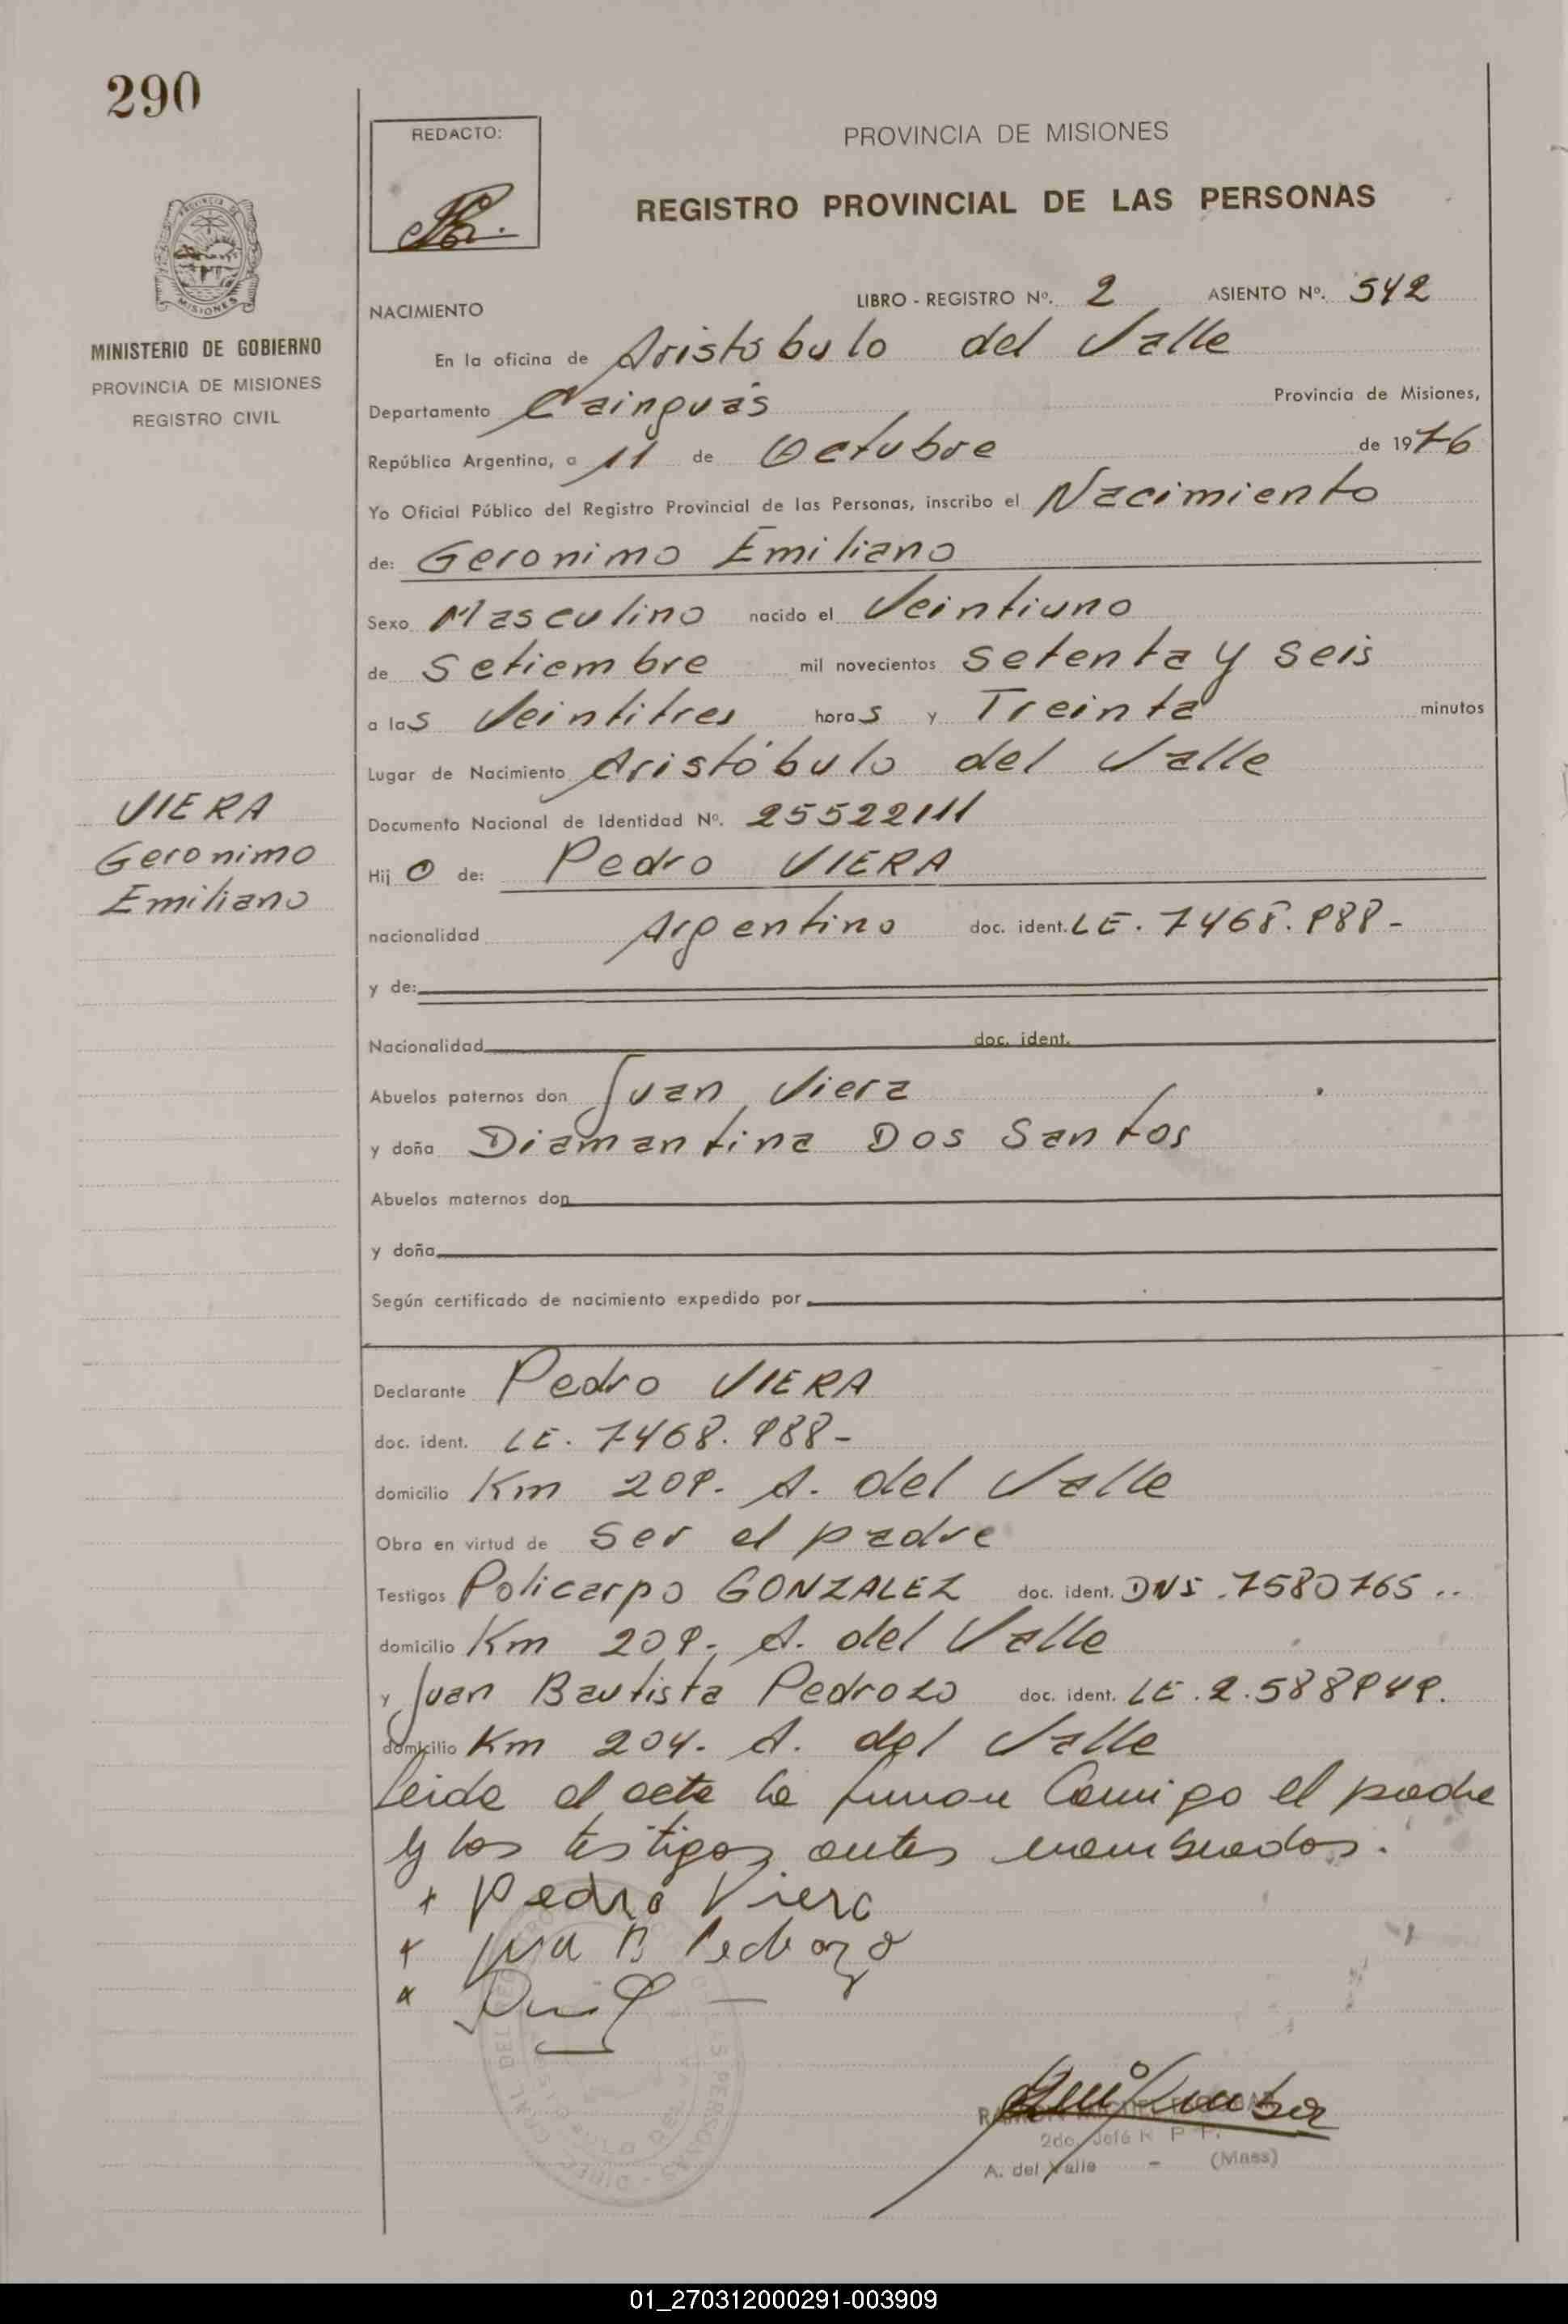 290
REDACTO:
PROVINCIA DE MISIONES
REGISTRO PROVINCIAL DE LAS PERSONAS
MINISTERIO DE GOBIERNO
PROVINCIA DE MISIONES
REGISTRO CIVIL
NACIMIENTO
LIBRO - REGISTRO Nº. 2 ASIENTO Nº. 542
En la oficina de Aristóbulo del Valle
Departamento Cainguás Provincia de Misiones,
República Argentina, a 11 de Octubre de 1976
Yo Oficial Público del Registro Provincial de las Personas, inscribo el Nacimiento
de: Geronimo Emiliano
Sexo Masculino nacido el Veintiuno
de Setiembre mil novecientos setenta y seis
a las Veintitres horas y Treinta minutos
Lugar de Nacimiento Aristóbulo del Valle
VIERA
Geronimo
Emiliano
Documento Nacional de Identidad Nº. 25522111
Hijo de: Pedro VIERA
nacionalidad Argentino doc. ident. LE. 7468.988-
y de:
Nacionalidad doc. ident.
Abuelos paternos don Juan Viera
y doña Diamantina Dos Santos
Abuelos maternos don
y doña
Según certificado de nacimiento expedido por
Declarante Pedro VIERA
doc. ident. LE. 7468.988-
domicilio Km 209. A. del Valle
Obra en virtud de ser el padre
Testigos Policarpo GONZALEZ doc. ident. DNI .7580765..
domicilio Km 209. A. del Valle
y Juan Bautista Pedrozo doc. ident. LE.2.588949.
domicilio Km 204. A. del Valle
Leida el acta la firman Conmigo el padre
y los testigos antes nombrados.
x Pedro Viera
x Jua B Pedrozo
x
2do. Jefe R P P.
A. del Valle - (Mnes)
01_270312000291-003909